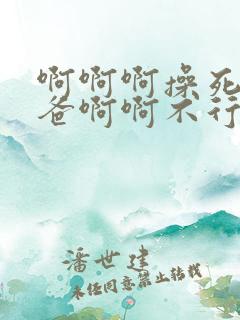 啊啊啊操死
爸啊啊不行
潘世建
未经同意禁止转载